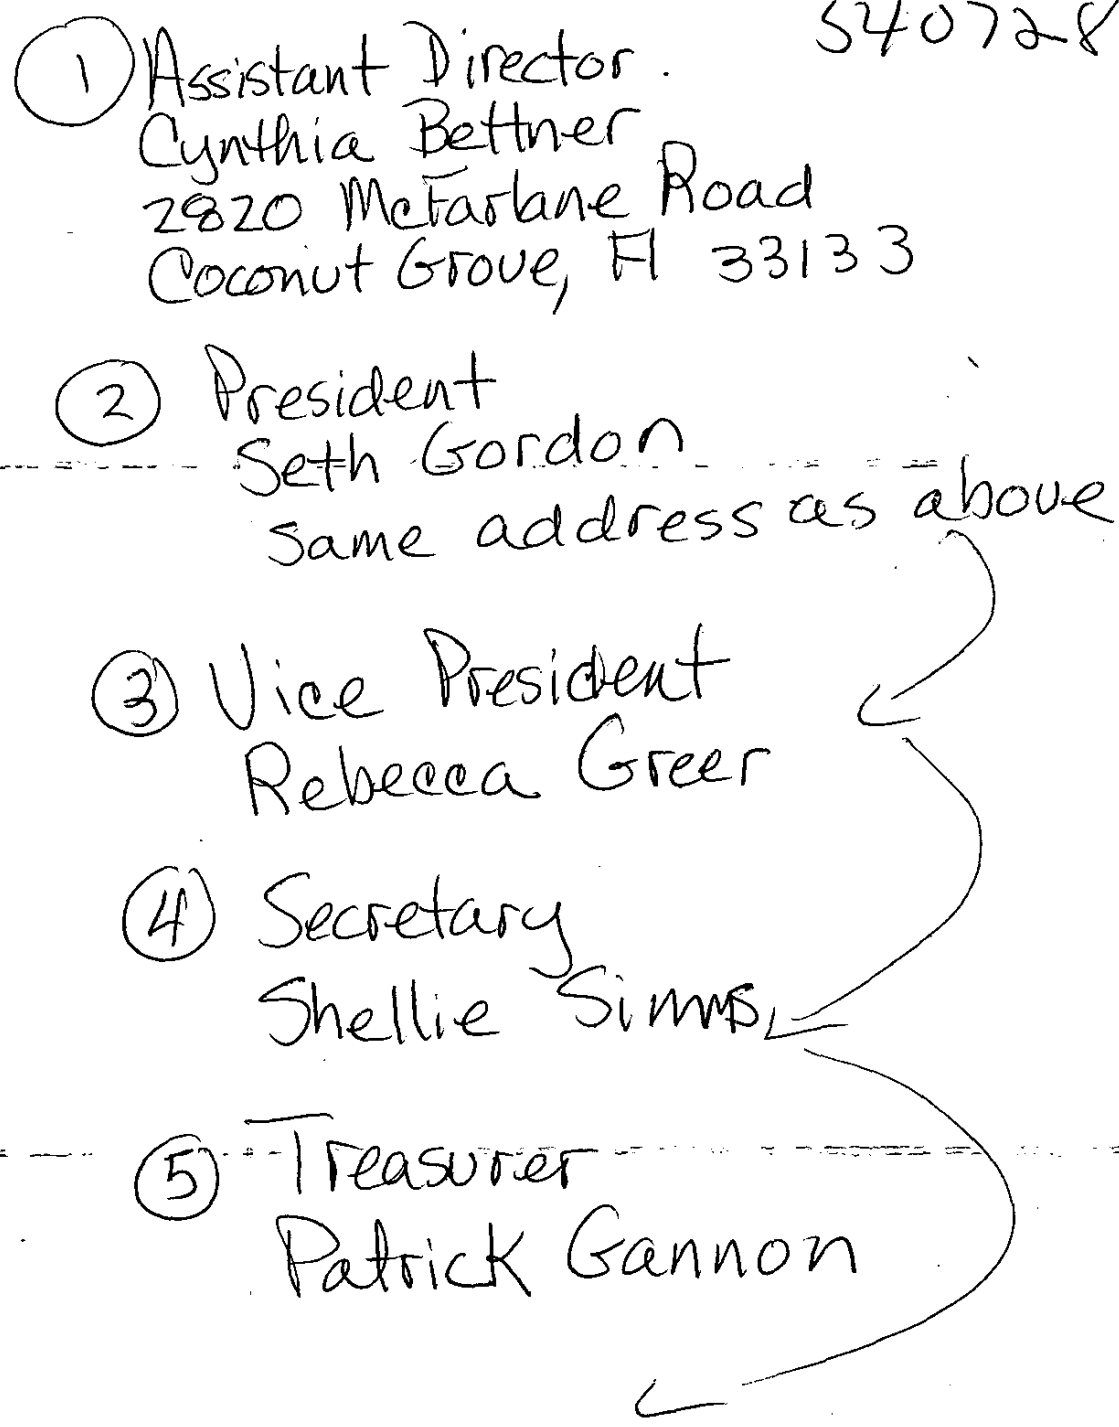 540728
1 Assistant Director
Cynthia Bettner
2820 McFarlane Road
Coconut Grove, Fl 33133
2 President
Seth Gordon
same address as above
3 Vice President
Rebecca Greer
4 Secretary
Shellie Simms
5 Treasurer
Patrick Gannon